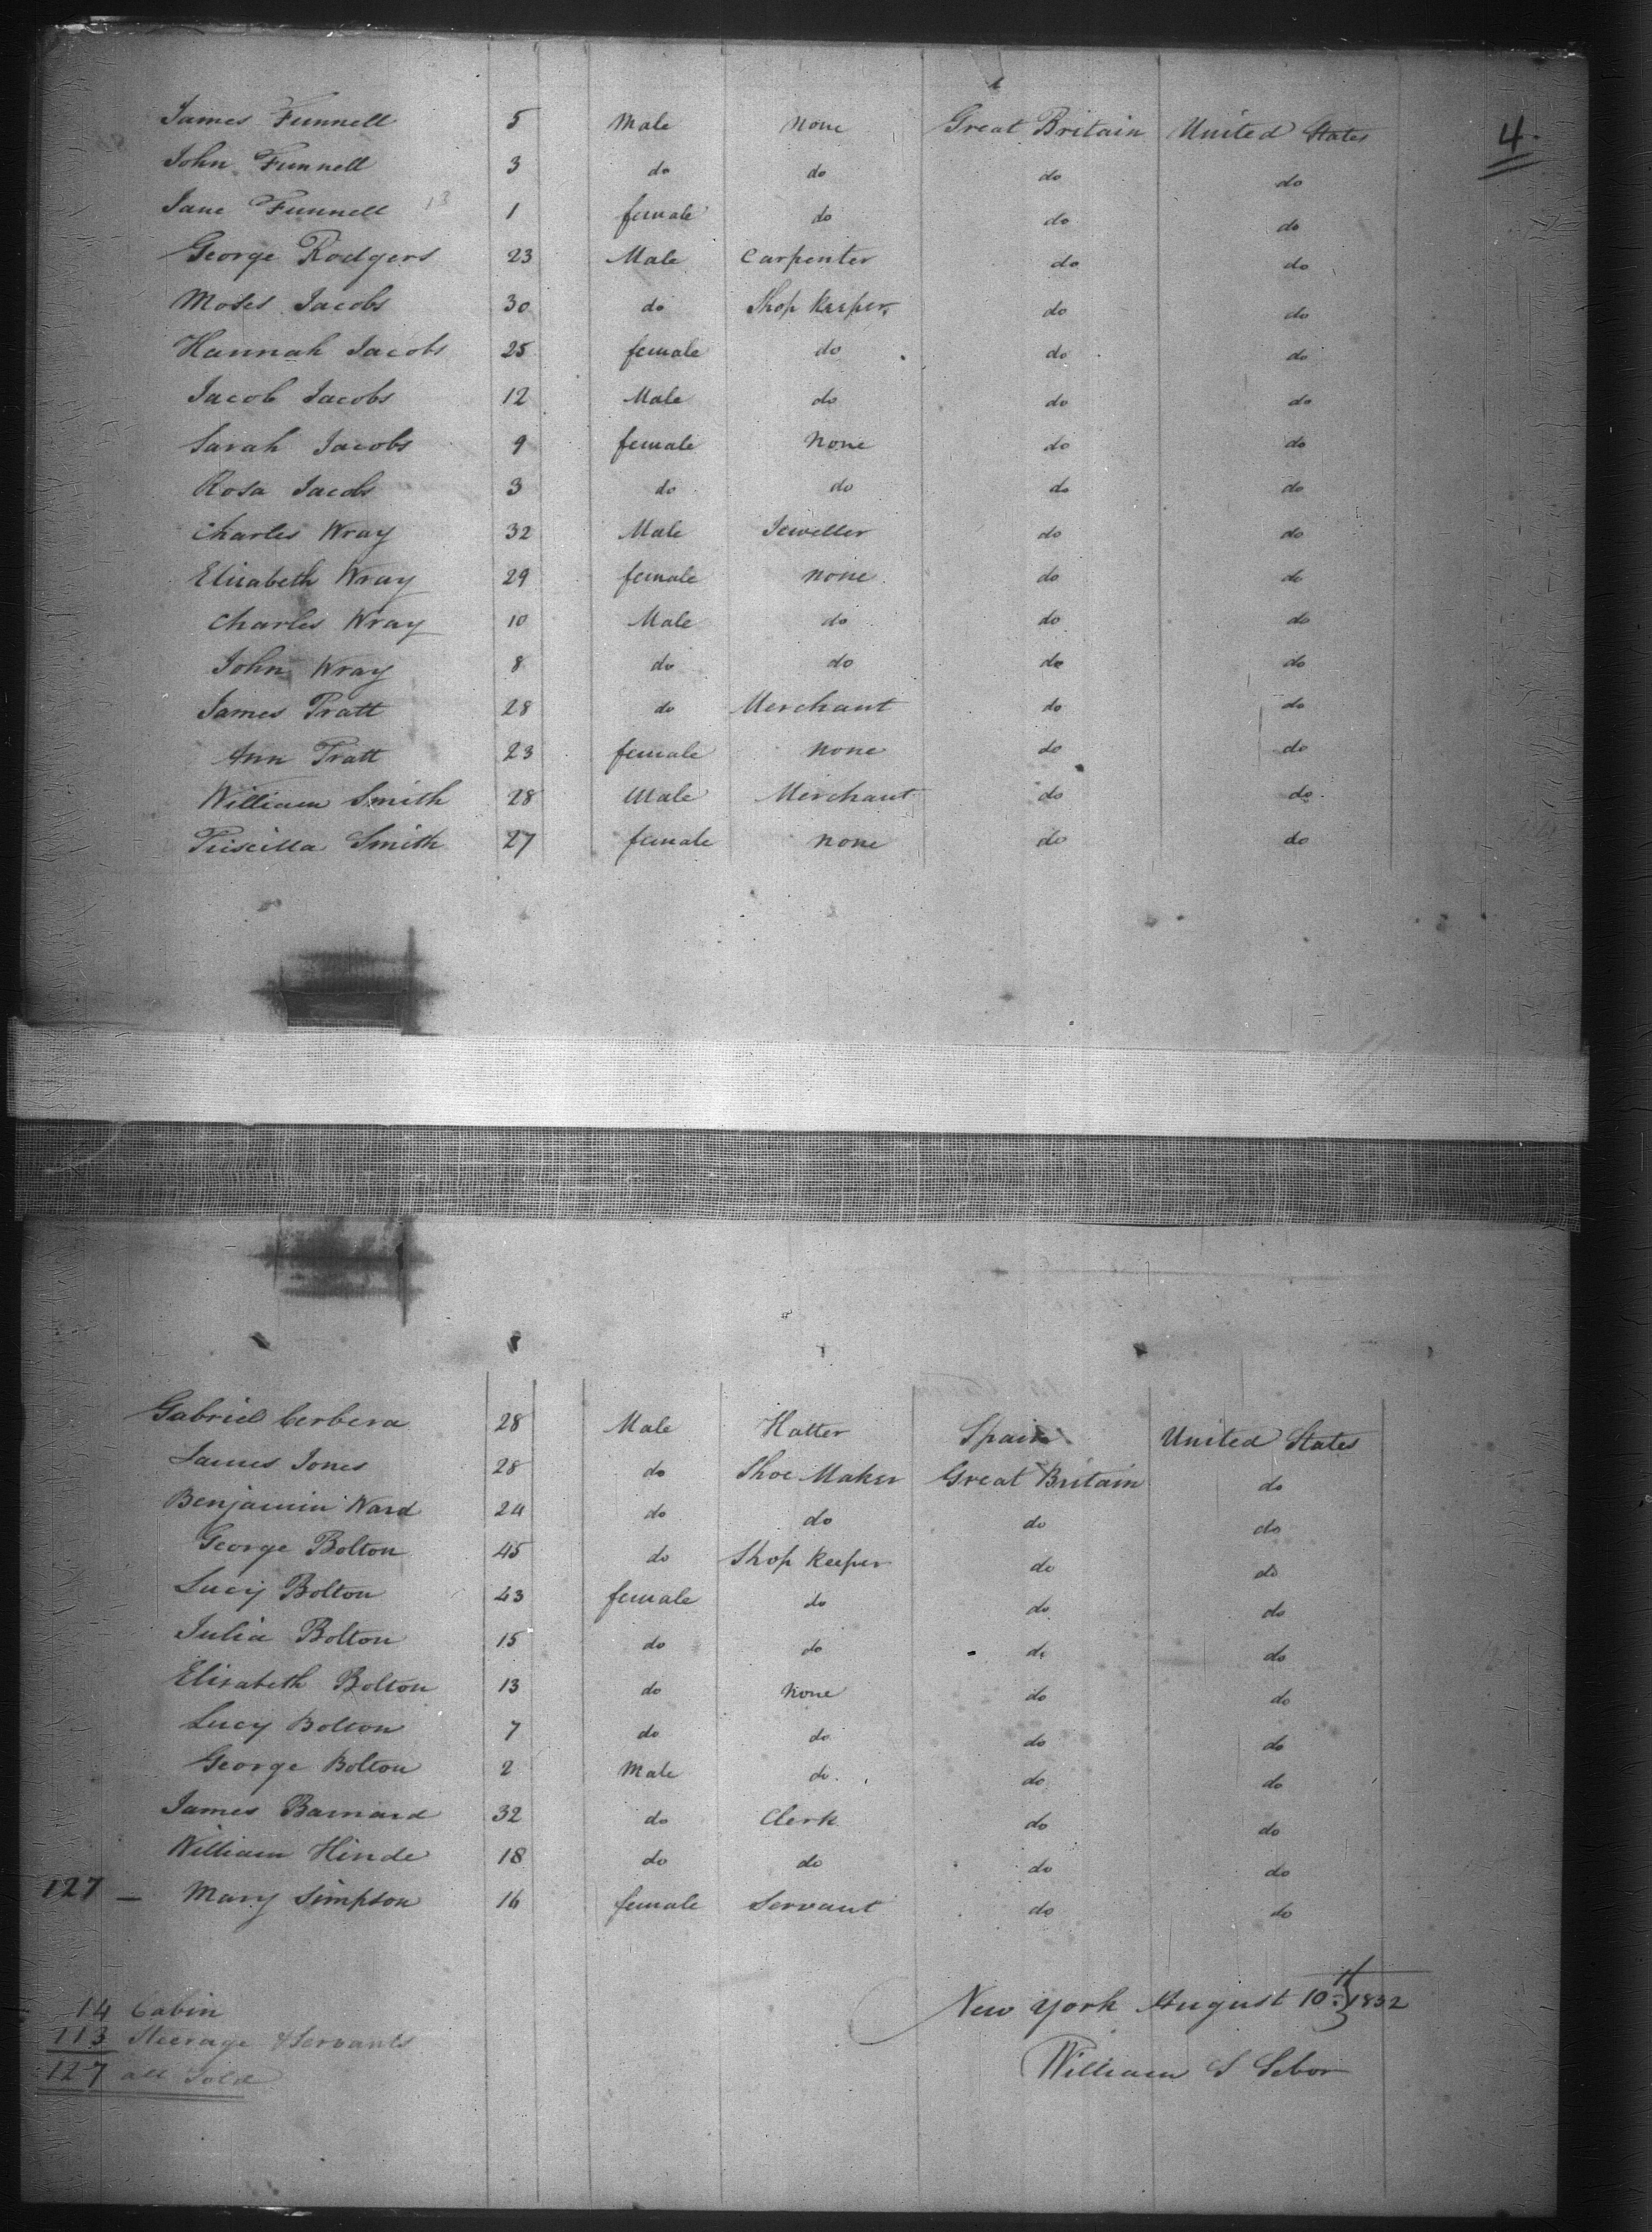 4.
James Funnell 5 Male None Great Britain United States
John Funnell 3 do do do do
Jane Funnell 13 1 female do do do
George Rodgers 23 Male Carpenter do do
Moses Jacobs 30 do Shop Keeper do do
Hannah Jacobs 25 female do do do
Jacob Jacobs 12 Male do do do
Sarah Jacobs 9 female None do do
Rosa Jacobs 3 do do do do
Charles Wray 32 Male Jeweller do do
Elizabeth Wray 29 female none do do
Charles Wray 10 Male do do do
John Wray 8 do do do do
James Pratt 28 do Merchant do do
Ann Pratt 23 female None do do
William Smith 28 Male Merchant do do
Priscilla Smith 27 female none do do
Gabriel Cerbera 28 Male Hatter Spain United States
James Jones 28 do Shoe Maker Great Britain do
Benjamin Ward 24 do do do do
George Bolton 45 do Shop Keeper do do
Lucy Bolton 43 female do do do
Julia Bolton 15 do do do do
Elizabeth Bolton 13 do None do do
Lucy Bolton 7 do do do do
George Bolton 2 Male do do do
James Barnard 32 do Clerk do do
William Hinde 18 do do do do
127 — Mary Simpson 16 female Servant do do
New York August 10th 1832
14 Cabin
113 Steerage & Servants
127 all Told
William S Sebor